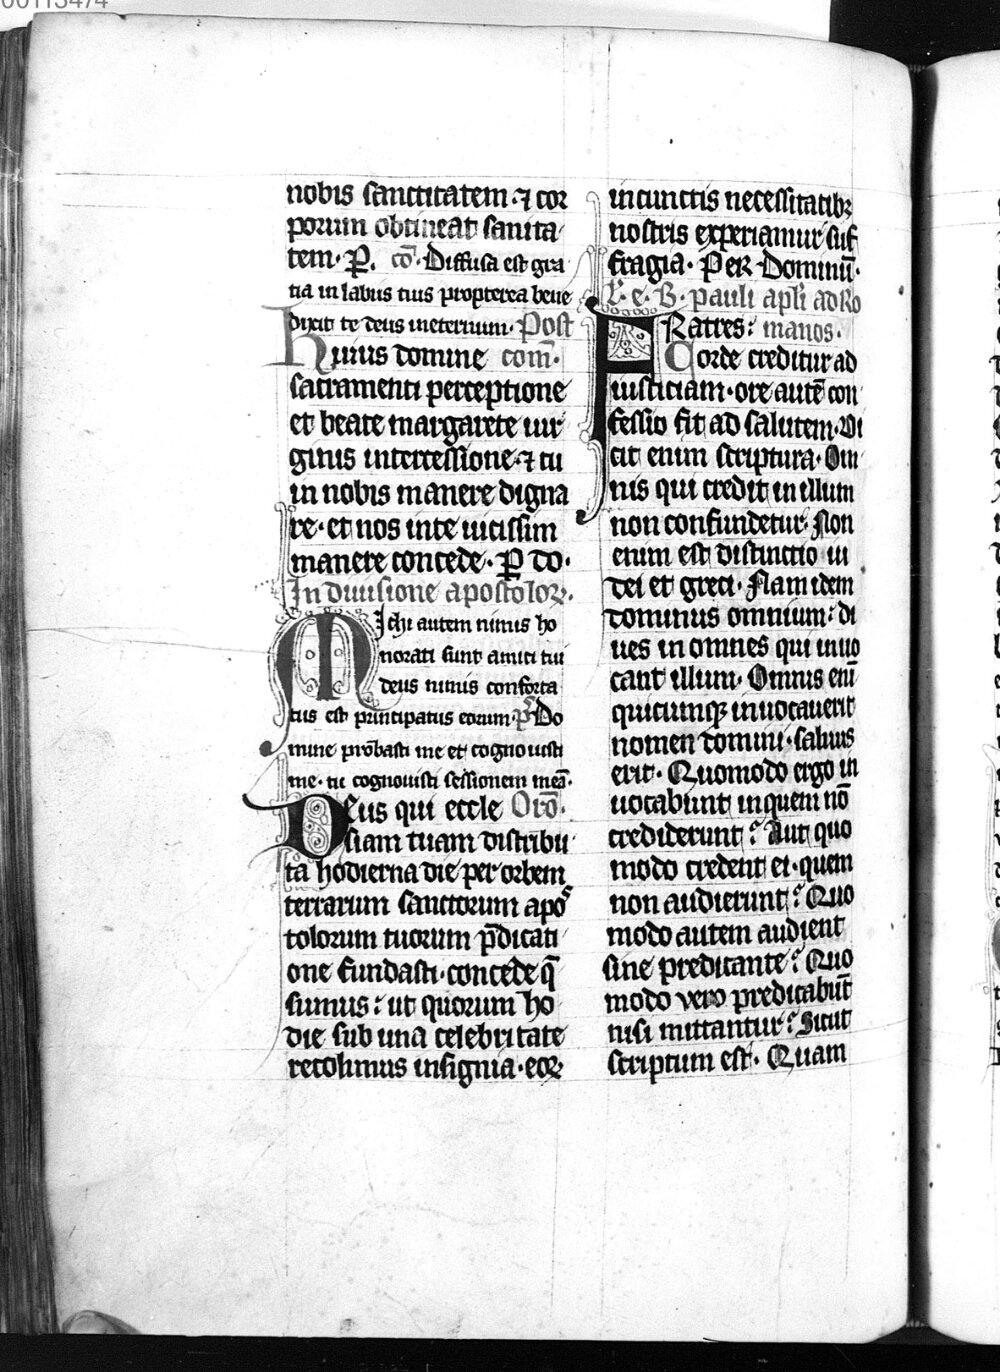 00113474
nobis sanctitatem ⁊ cor
porum obtineat sanita
tem. P. cō. Diffusa est gra
tia in labiis tuis propterea bene
dixit te deus ineternum. Post
Huius domine com̄.
sacramenti perceptione
et beate margarete uir
ginis intercessione ⁊ tu
in nobis manere digna
re. et nos inte uicissim
manere concede. P do.
In diuisione apostoloꝝ.
Michi autem nimis ho
norati sunt amici tui
deus nimis conforta
tus est principatus eorum. p̄s Do
mine probasti me et cognouisti
me. tu cognouisti sessionem meā.
Deus qui eccle Orō.
siam tuam distribu
ta hodierna die per orbem
terrarum sanctorum apos
tolorum tuorum p̄dicati
one fundasti. concede q̄
sumus: ut quorum ho
die sub una celebritate
recolimus insignia. eoꝝ
incunctis necessitatibꝫ
nostris experiamur suf
fragia. Per Dominū.
L. e. B. pauli apl̄i ad Ro
FRatres: manos.
Corde creditur ad
iusticiam. ore autē con
fessio fit ad salutem. Di
cit enim scriptura. Om
nis qui credit in illum
non confundetur. Non
enim est distinctio iu
dei et greci. Nam idem
dominus omnium: di
ues in omnes qui inuo
cant illum. Omnis enī
quicumqꝫ inuocauerit
nomen domini. saluus
erit. Quomodo ergo in
uocabunt inquem nō
crediderunt? Aut quo
modo credent ei. quem
non audierunt? Quo
modo autem audient
sine predicante? Quo
modo vero predicabūt
nisi mittantur? Sicut
scriptum est. Quam